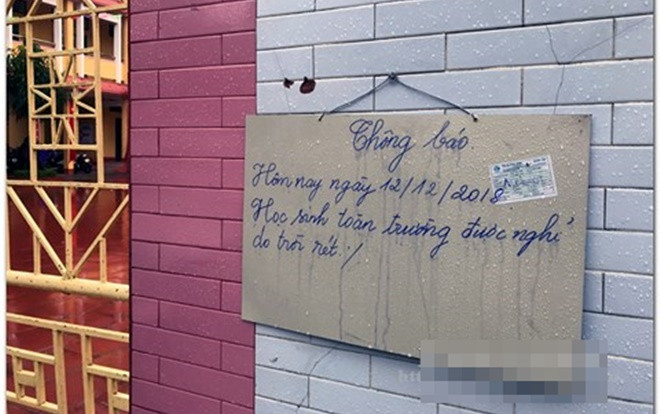 Thông báo
Hôm nay ngày 12/12/2018
Học sinh toàn trường được nghỉ
do trời rét./